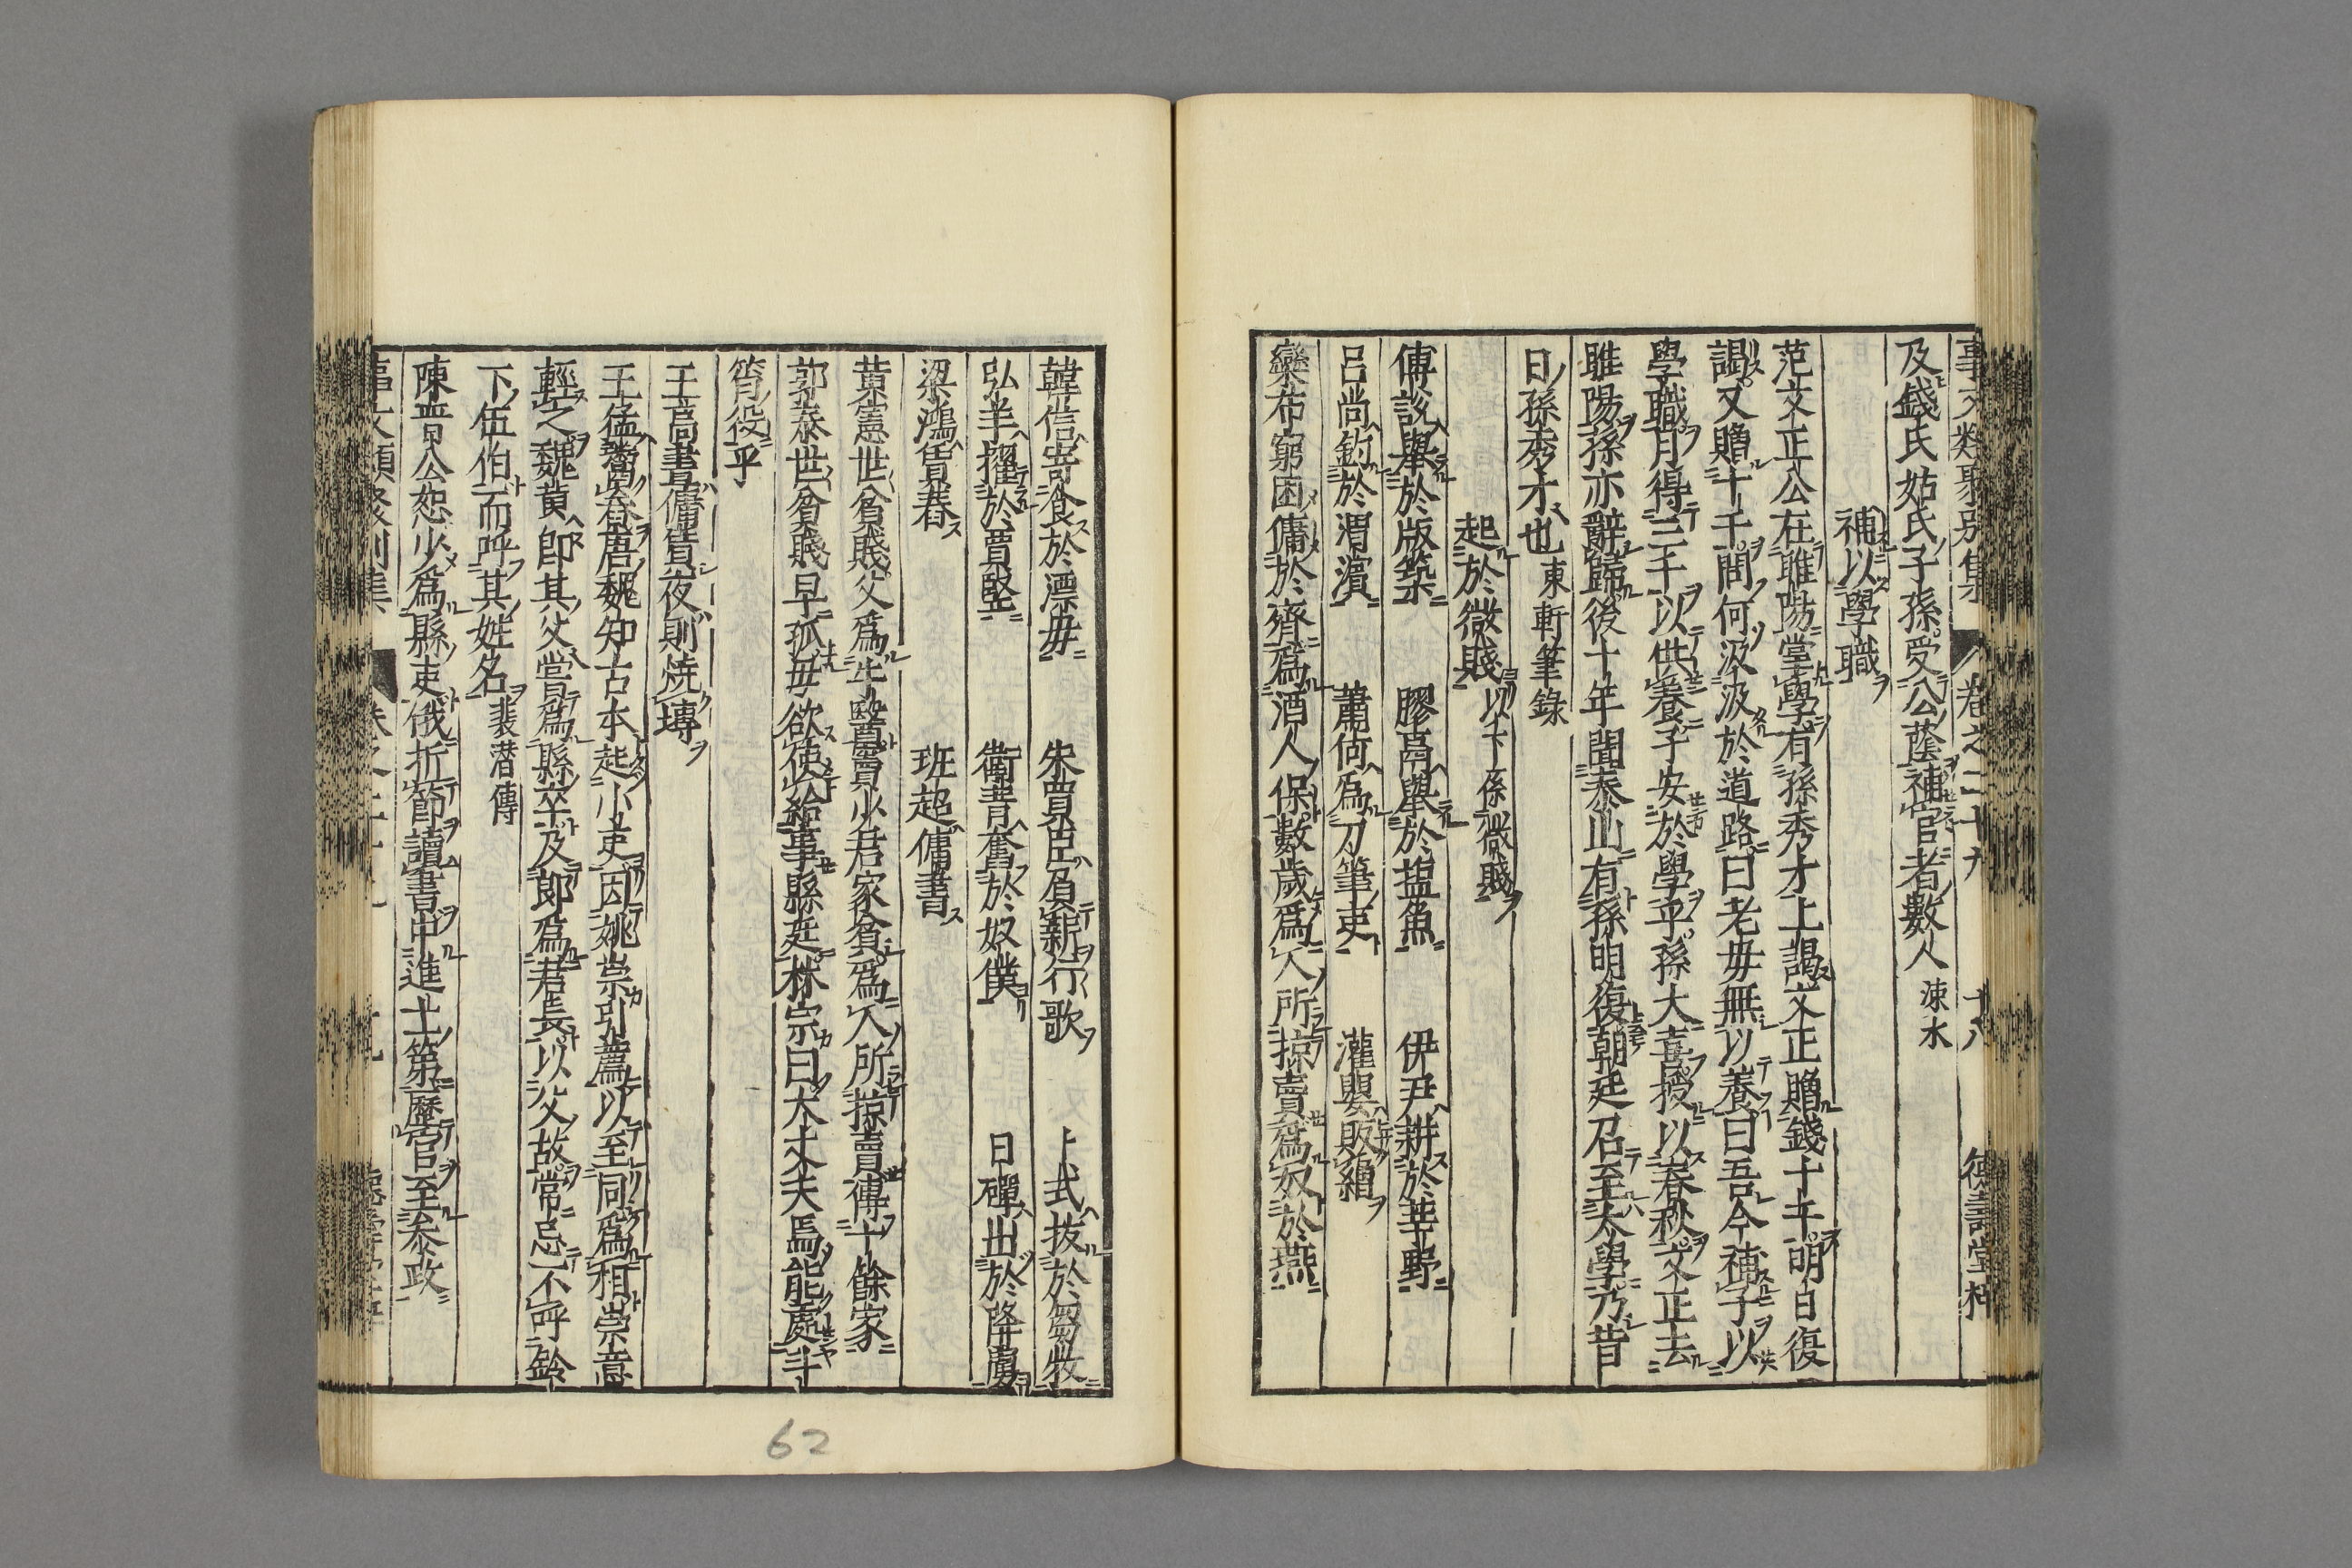 事文類聚別集 卷之二十九 十八 德壽堂梓
及錢氏姑氏子孫受公蔭補官者數人 涑水
補以學職
范文正公在睢陽堂學有孫秀才上謁文正贈錢十千明白復
謁又贈十千問何汲汲於道路曰老毋無以養曰吾今補子以
學職月得三千以供養子安於學乎孫大喜授以春秋文正去
睢陽孫亦辭歸後十年聞泰山有孫明復朝廷召至太學乃昔
日孫秀才也 東軒筆錄
起於微賤 以下係微賤
傅說舉於版築 膠鬲舉於塩魚 伊尹耕於莘野
呂尚釣於渭濵 蕭何為刀筆吏 灌嬰販繒
欒布窮困傭於齊為酒人保數歲為人所掠賣為奴於燕
韓信寄食於漂毋 朱買臣負薪行歌 卜式拔於芻牧
弘羊擢於賈竪 衛青奮於奴僕 日磾出於降虜
梁鴻賃舂 班超傭書
黃憲世貧賤父為牛醫竇少君家貧為人所掠賣傳十餘家
郭泰世貧賤早孤毋欲使給事縣廷林宗曰大丈夫焉能處斗
筲役乎
王高晝傭賃夜則燒塼
王猛鬻畚唐魏知古本起小吏因姚崇引薦以至同為相崇意
輕之魏黃即其父嘗為縣卒及郎為君長以父故常忌不呼鈴
下伍伯而呼其姓名 裴潜傳
陳晋公恕少為縣吏俄折節讀書中進士第歷官至泰政
62